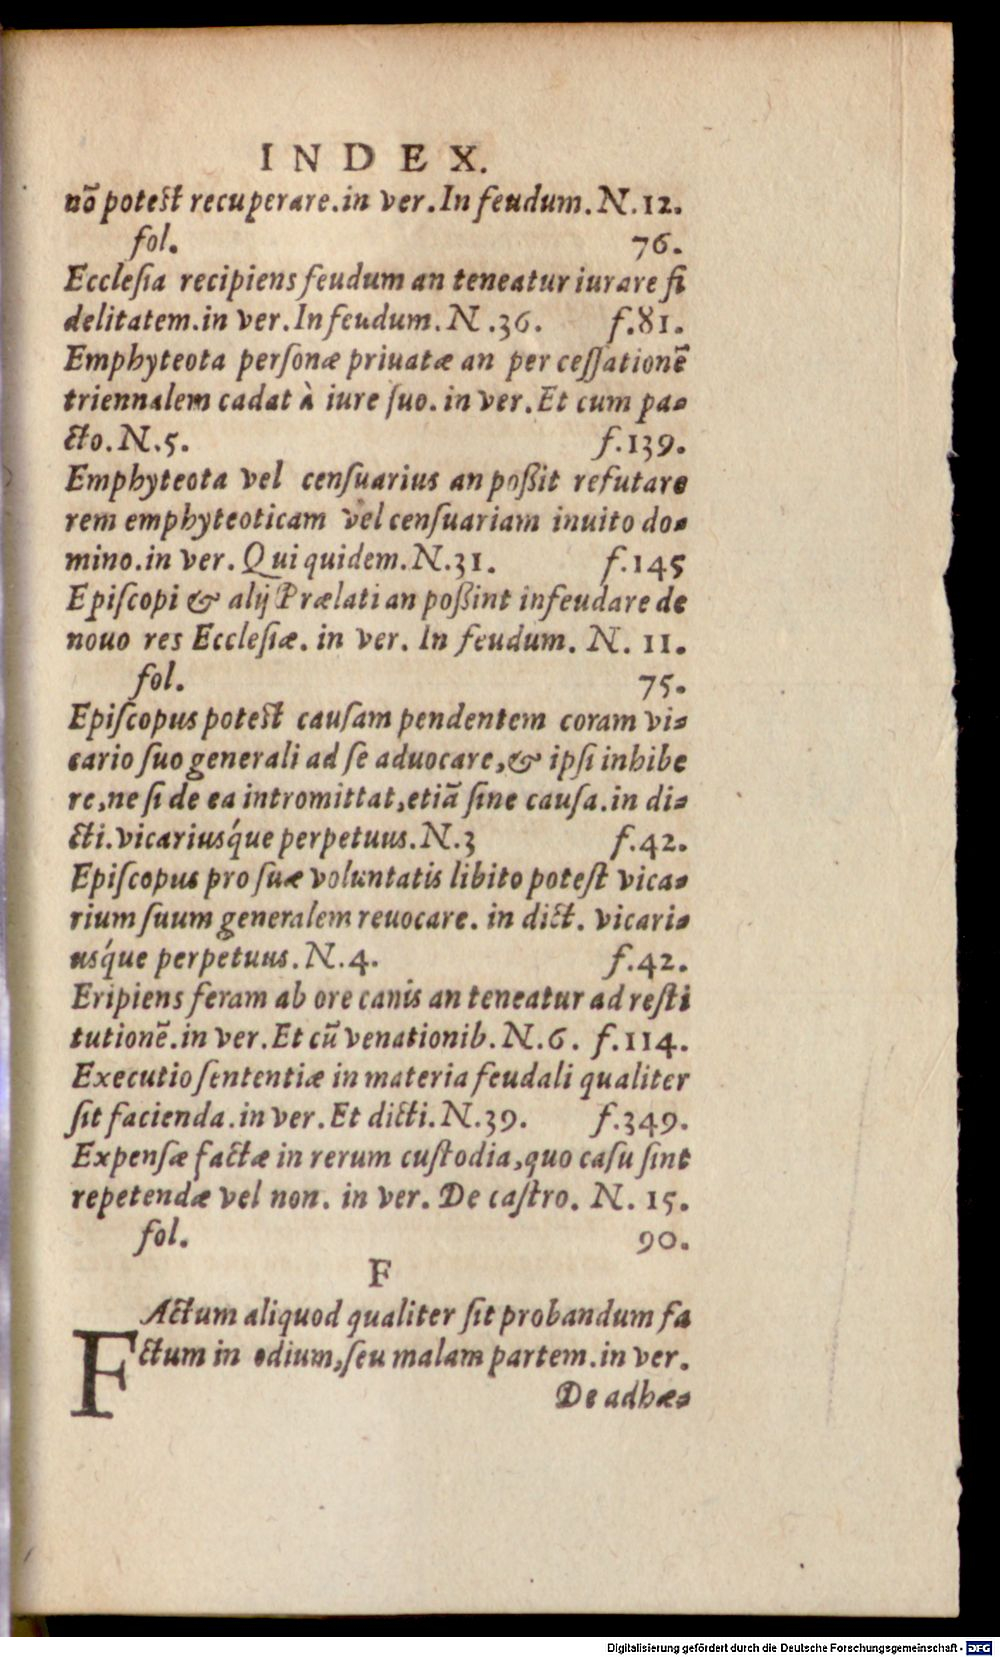 INDEX.
nõ potest recuperare.in ver.In feudum.N.12.
fol. 76.
Ecclesia recipiens feudum an teneatur iurare fi
delitatem.in ver.In feudum.N.36. f.81.
Emphyteota personæ priuatæ an per cessationẽ
triennalem cadat à iure suo. in ver.Et cum pa-
cto.N.5. f.139.
Emphyteota vel censuarius an poßit refutare
rem emphyteoticam vel censuariam inuito do-
mino.in ver. Qui quidem.N.31. f.145
Episcopi & alij Prælati an poßint infeudare de
nouo res Ecclesiæ. in ver. In feudum. N. 11.
fol. 75.
Episcopus potest causam pendentem coram vi-
cario suo generali ad se aduocare,& ipsi inhibe
re,ne si de ea intromittat,etiã sine causa.in di-
cti.vicariusq́ue perpetuus.N.3 f.42.
Episcopus pro suæ voluntatis libito potest vica-
rium suum generalem reuocare. in dict. vicari-
usq́ue perpetuus.N.4. f.42.
Eripiens feram ab ore canis an teneatur ad resti
tutionẽ.in ver.Et cũ venationib.N.6. f.114.
Executio sententiæ in materia feudali qualiter
sit facienda.in ver.Et dicti.N.39. f.349.
Expensæ factæ in rerum custodia,quo casu sint
repetendæ vel non. in ver. De castro. N. 15.
fol. 90.
F
FActum aliquod qualiter sit probandum fa
ctum in odium,seu malam partem.in ver.
De adhæ-
Digitalisierung gefördert durch die Deutsche Forschungsgemeinschaft - DFG